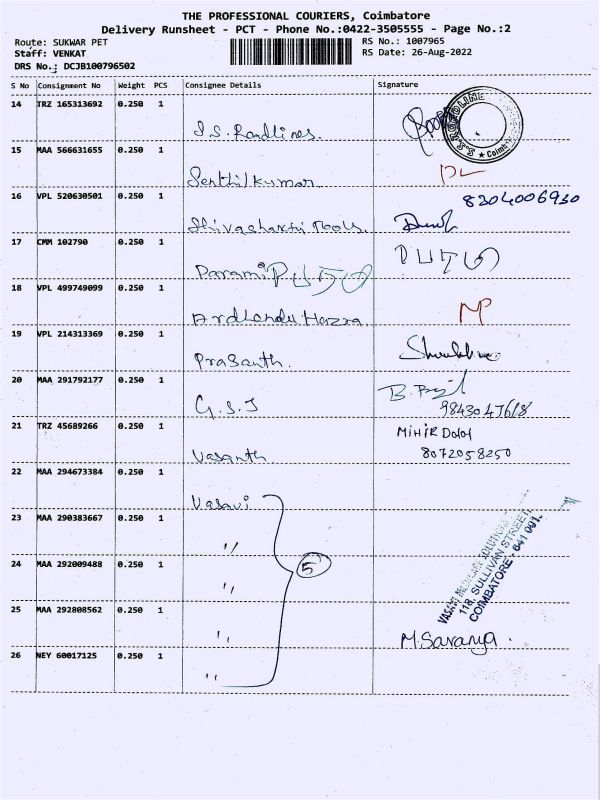 THE PROFESSIONAL COURIERS, Coimbatore
Delivery Runsheet - PCT - Phone No.:0422-3505555 - Page No.:2
Route: SUKWAR PET
RS No.: 1007965
Staff: VENKAT
RS Date: 26-Aug-2022
DRS No.; DCJB100796502
S No Consignment No Weight PCS Consignee Details Signature
14 TRZ 165313692 0.250 1
S.S. Roadlines.
15 MAA 566631655 0.250 1
Senthilkumar
16 VPL 520630501 0.250 1
8304006930
Shivashakti Tools.
17 CMM 102790 0.250 1
Parami
18 VPL 499749099 0.250 1
Ardhendu Hazra
19 VPL 214313369 0.250 1
Prasanth.
20 MAA 291792177 0.250 1
G.S.J
21 TRZ 45689266 0.250 1
MIHIR Dalal
8072058250
Vasanth.
22 MAA 294673384 0.250 1
Vasavi
23 MAA 290383667 0.250 1
"
24 MAA 292009488 0.250 1
5
"
118, SULLIVAN STREET,
COIMBATORE - 641 001.
25 MAA 292808562 0.250 1
"
M.Saranya.
26 NEY 60017125 0.250 1
"